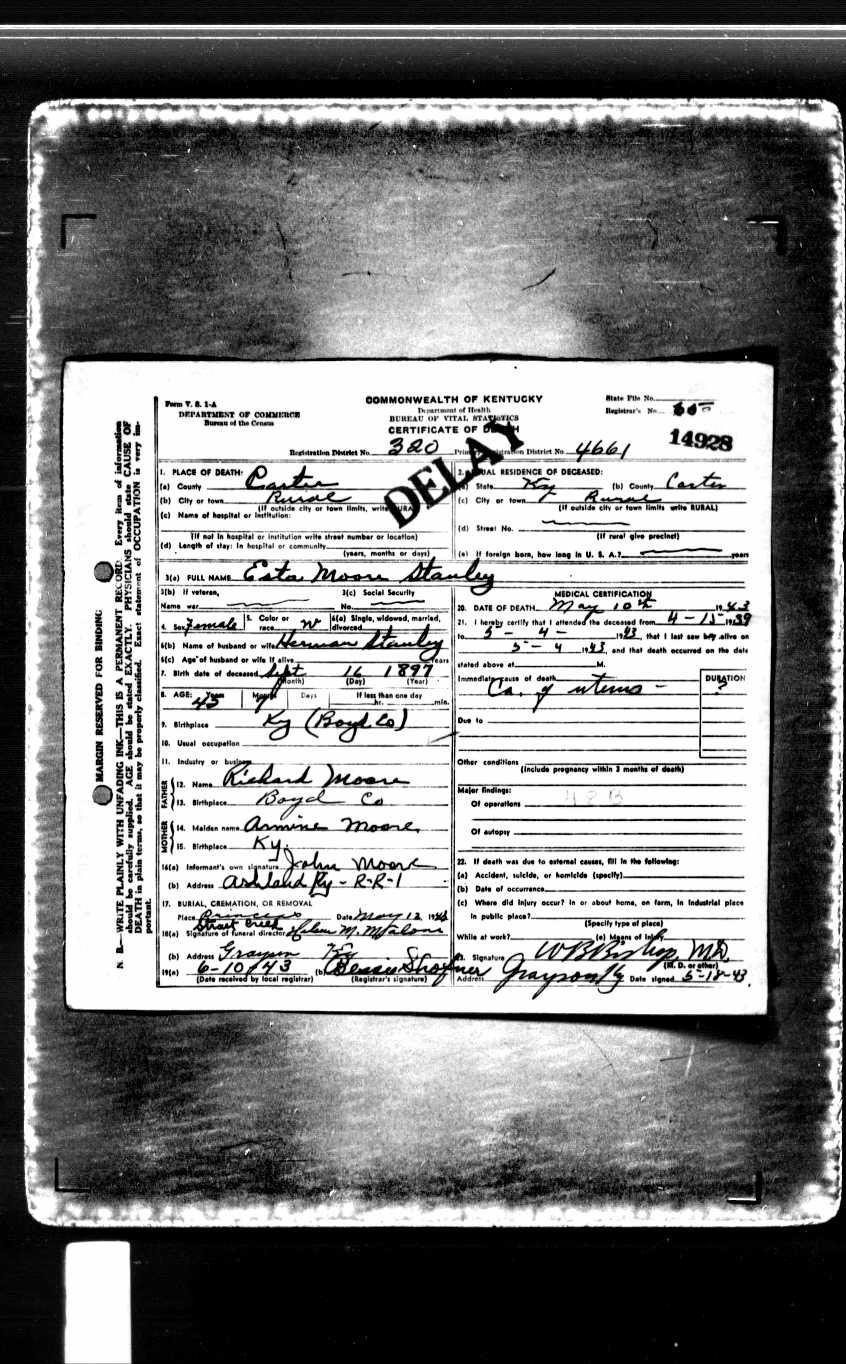 Form V. S. 1-A
DEPARTMENT OF COMMERCE
Bureau of the Census
COMMONWEALTH OF KENTUCKY
Department of Health
BUREAU OF VITAL STATISTICS
CERTIFICATE OF DEATH
State File No.
Registrar's No.
14928
DELAY
Registration District No. 320
Primary Registration District No. 4661
1. PLACE OF DEATH:
(a) County Carter
(b) City or town Rural
(If outside city or town limits, write RURAL)
(c) Name of hospital or institution:
(If not in hospital or institution write street number or location)
(d) Length of stay: In hospital or community
(years, months or days)
2. USUAL RESIDENCE OF DECEASED:
(a) State Ky (b) County Carter
(c) City or town Rural
(If outside city or town limits write RURAL)
(d) Street No.
(If rural give precinct)
(e) If foreign born, how long in U. S. A.? years
3(a) FULL NAME Esta Moore Stanley
3(b) If veteran, 3(c) Social Security
Name war No.
4. Sex Female 5. Color or race W 6(a) Single, widowed, married, divorced
6(b) Name of husband or wife Herman Stanley
6(c) Age of husband or wife if alive years
7. Birth date of deceased Sept 16 1897
(Month) (Day) (Year)
8. AGE: Years Months Days If less than one day
45 7 hr. min.
9. Birthplace Ky (Boyd Co)
10. Usual occupation
11. Industry or business
FATHER
12. Name Richard Moore
13. Birthplace Boyd Co
MOTHER
14. Maiden name Armine Moore
15. Birthplace Ky.
16(a) Informant's own signature John Moore
(b) Address Ashland Ky - R-R-1
17. BURIAL, CREMATION, OR REMOVAL
Place Princess Date May 12 1943
Straight Creek
18(a) Signature of funeral director Helen M. Malone
(b) Address Grayson Ky
19(a) 6-10/43 (b) Bessie Shofner
(Date received by local registrar) (Registrar's signature)
MEDICAL CERTIFICATION
20. DATE OF DEATH May 10th 1943
21. I hereby certify that I attended the deceased from 4-15 1939
to 5 - 4 - 1943, that I last saw her alive on
5 - 4 1943, and that death occurred on the date
stated above at M.
Immediate cause of death DURATION
Ca. of uterus - ?
Due to
Other conditions
(Include pregnancy within 3 months of death)
Major findings:
Of operations 48B
Of autopsy
22. If death was due to external causes, fill in the following:
(a) Accident, suicide, or homicide (specify)
(b) Date of occurrence
(c) Where did injury occur? in or about home, on farm, in industrial place
in public place?
(Specify type of place)
While at work? (e) Means of injury
23. Signature WB Bishop, MD.
(M. D. or other)
Address Grayson Ky Date signed 5-18-43.
MARGIN RESERVED FOR BINDING
N. B.—WRITE PLAINLY WITH UNFADING INK—THIS IS A PERMANENT RECORD Every item of information
should be carefully supplied. AGE should be stated EXACTLY. PHYSICIANS should state CAUSE OF
DEATH in plain terms, so that it may be properly classified. Exact statement of OCCUPATION is very im-
portant.